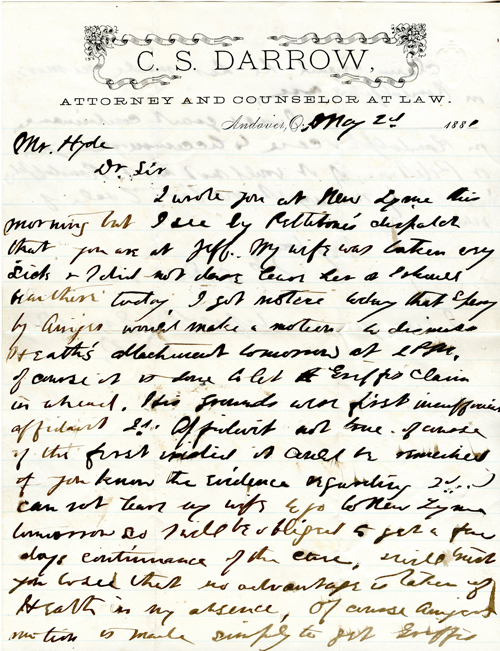 C. S. DARROW,
ATTORNEY AND COUNSELOR AT LAW.
Andover, O., May 2d 188
Mr. Hyde
Dr. Sir
I wrote you at New Lyme this
morning but I see by Pettibone's dispatch
that you are at Jeff. My wife was taken very
sick & I did not dare leave her or I should
be there today. I got notice today that
by would make a motion to dismiss
Heath's attachment tomorrow at 1 P.M.
of course it is done to let Griffis claim
in ahead. His grounds were first insufficient
affidavit 2d. Affidavit not true. of course
if the first it could be remedied
if you know the evidence regarding 2d. I
can not leave my wife & go to New Lyme
tomorrow so I will be obliged to get a few
days continuance of the case, I will trust
you to see that no advantage is taken of
Heath in my absence, Of course
motion is made simply to get Griffis